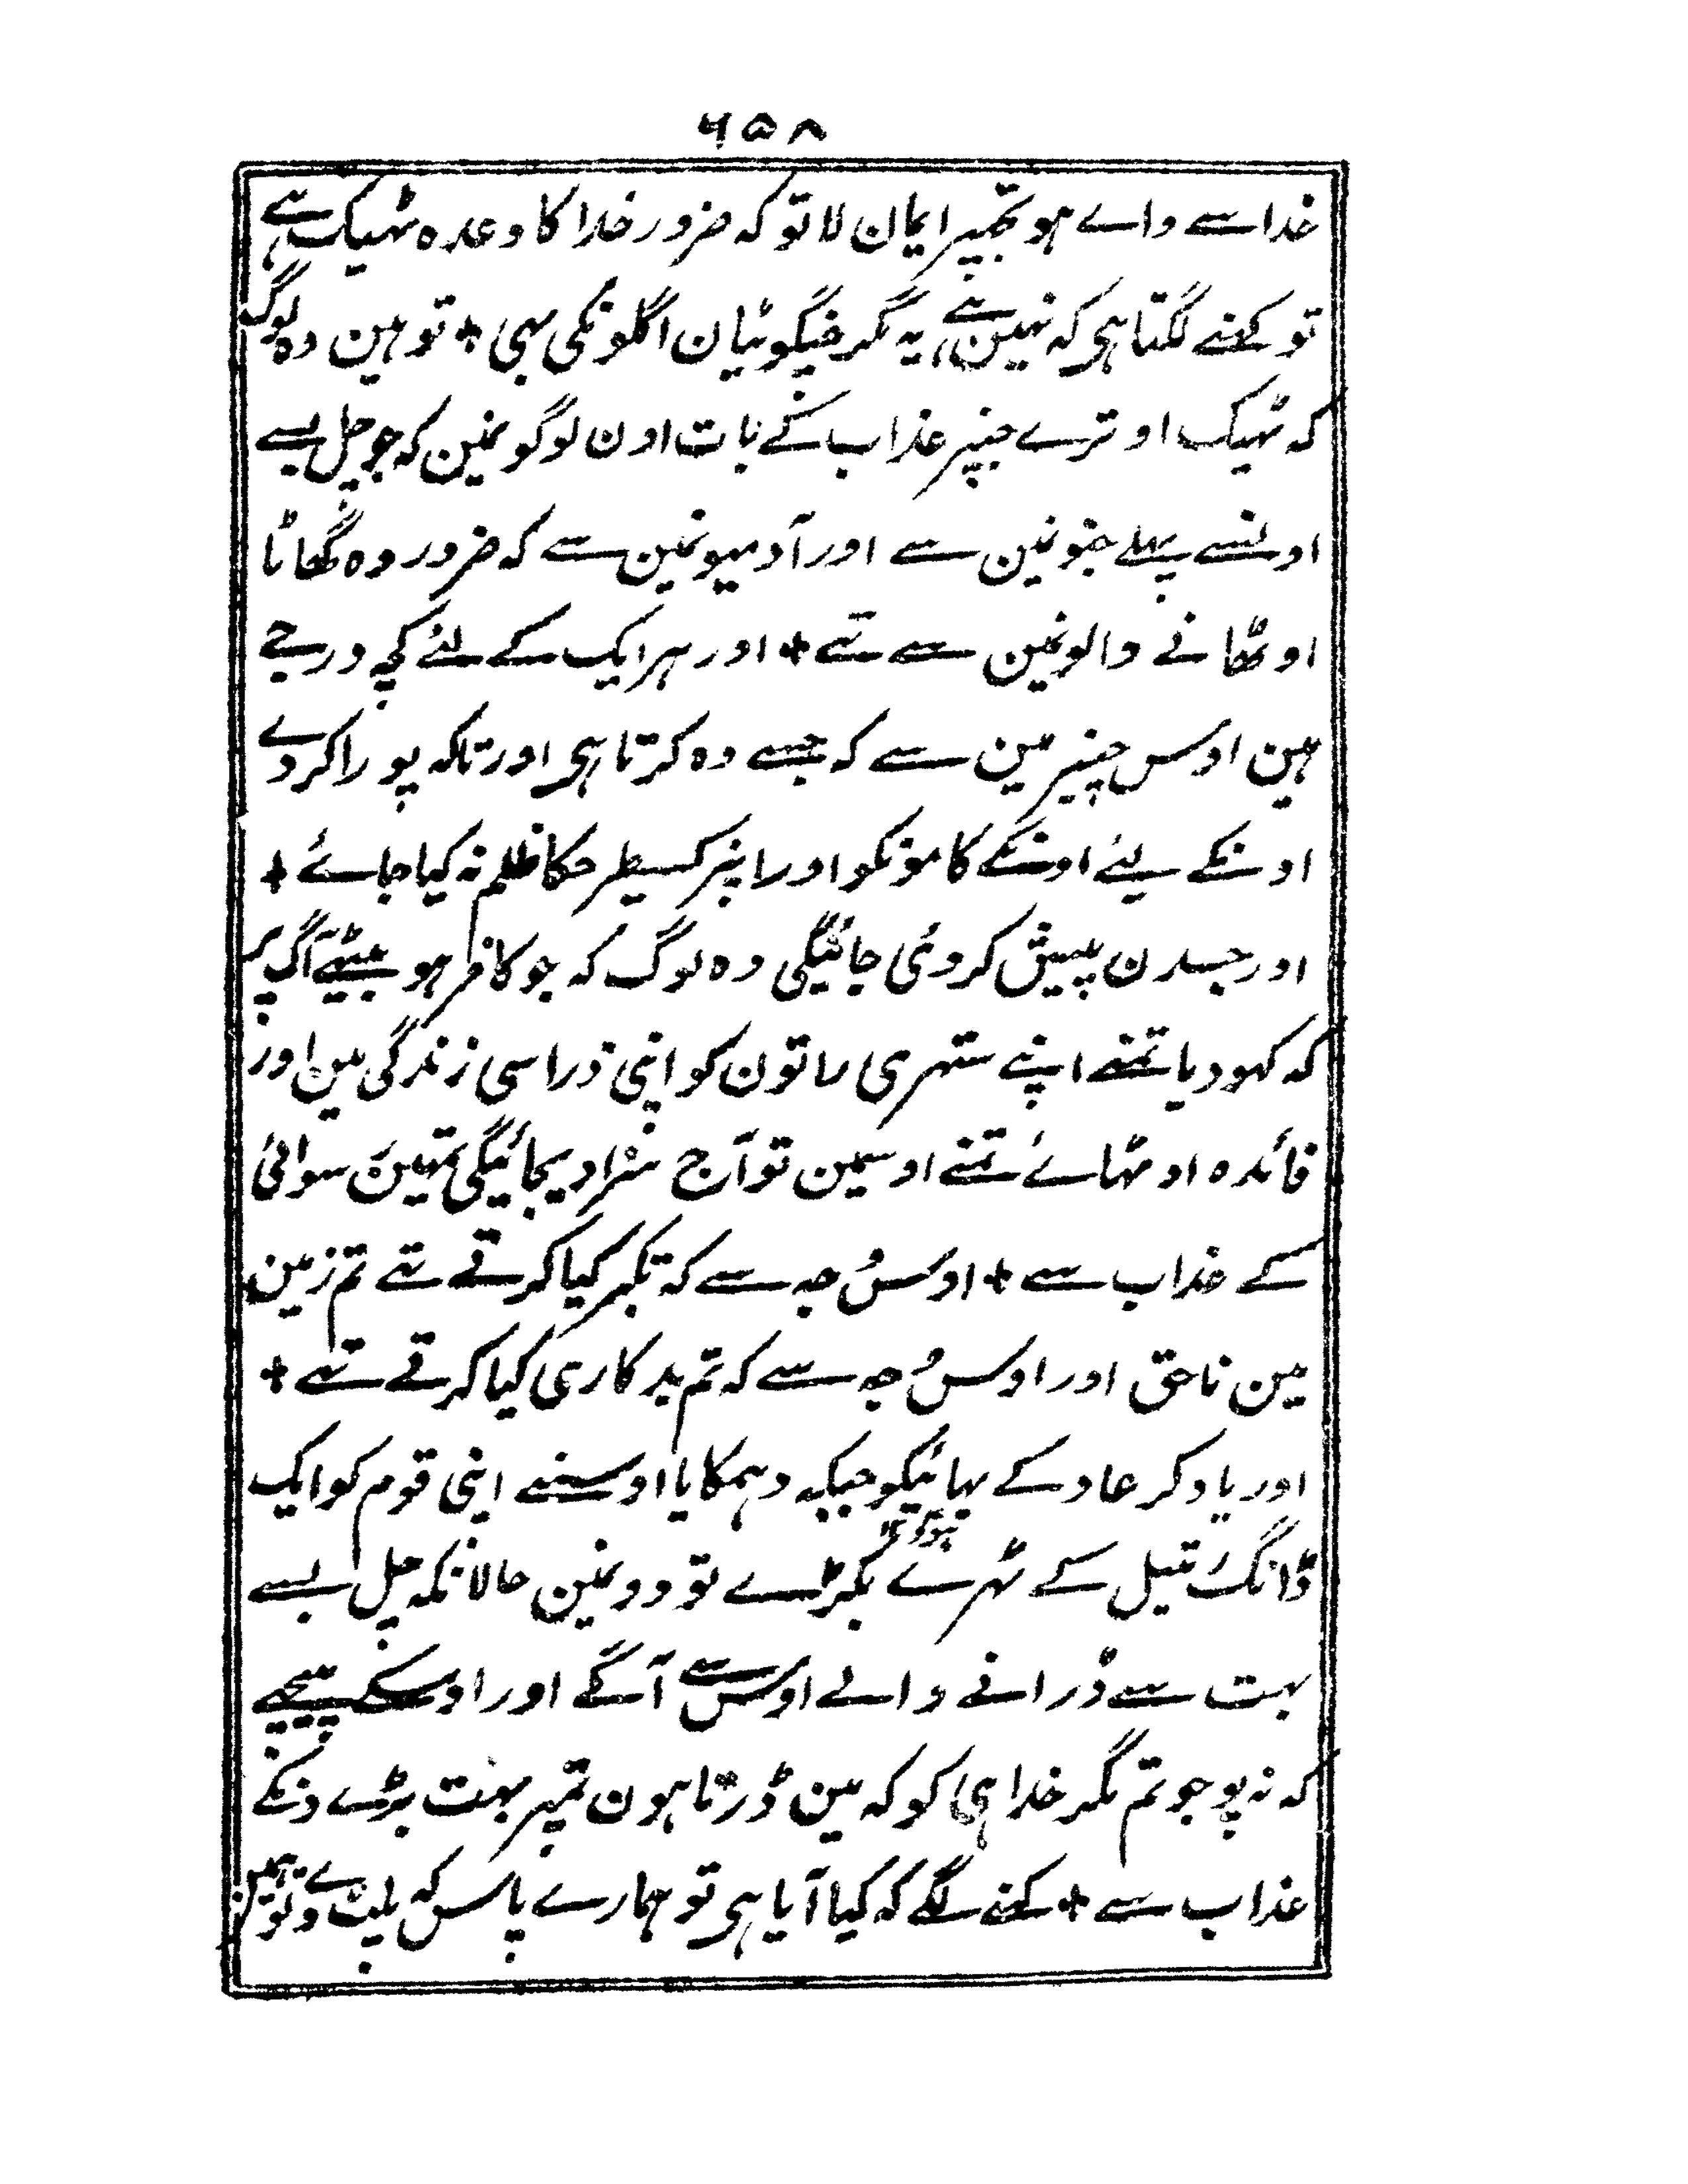 ۶۵۸
خدا سے واے ہو تجھپر ایمان لا تو کہ ضرور خدا کا وعدہ ٹہیک ہے
تو کہنے لگتا ہی کہ نہین ہے یہ مگر خپگوئیان اگلونکی سہی + تو ہین وہ لوگ
کہ ٹہیک اوترے جنپر عذاب کے بات اون لوگونمین کہ جو چل بسے
اونسے پہلے جنونمین سے اور آدمیونمین سے کہ ضرور وہ گھاٹا
اوٹھانے والونمین سے تہے + اور ہر ایک کے لئے کچھ درجے
ہین اوس چیز مین سے کہ جسے وہ کرتا ہی اور تاکہ پورا کر دے
اونکے لیئے اونکے کامونکو اور اونپر کسیطرحکا ظلم نہ کیا جائے +
اور جسدن پیش کردی جائیگی وہ لوگ کہ جو کافر ہو بیٹھے آگ پر
کہ کہو دیا تمنے اپنے ستھری باتون کو اپنی ذرا سی زندگی مین اور
فائدہ اوٹہائے تمنے اوسمین تو آج سزا دیجائیگی تمہین رسوائی
کے عذاب سے + اوس وجہ سے کہ تکبر کیا کرتے تہے تم زمین
مین ناحق اور اوس وجہ سے کہ تم بدکاری کیا کرتے تہے +
اور یاد کر عاد کے بہائیکو جبکہ دہمکایا اوسنے اپنی قوم کو ایک
ڈانگ رتیل کے ٹہرے بگڑے تودونمین حالانکہ چل بسے
بہت سے ڈرانے والے اوس سے آگے اور اوسکے پیچہے
کہ نہ پوجو تم مگر خدا ہی کو کہ مین ڈرتا ہون تمپر بہت بڑے دنکے
عذاب سے + کہنے لگے کہ کیا آیا ہی تو ہمارے پاس کہ پلٹ دے تو ہمین